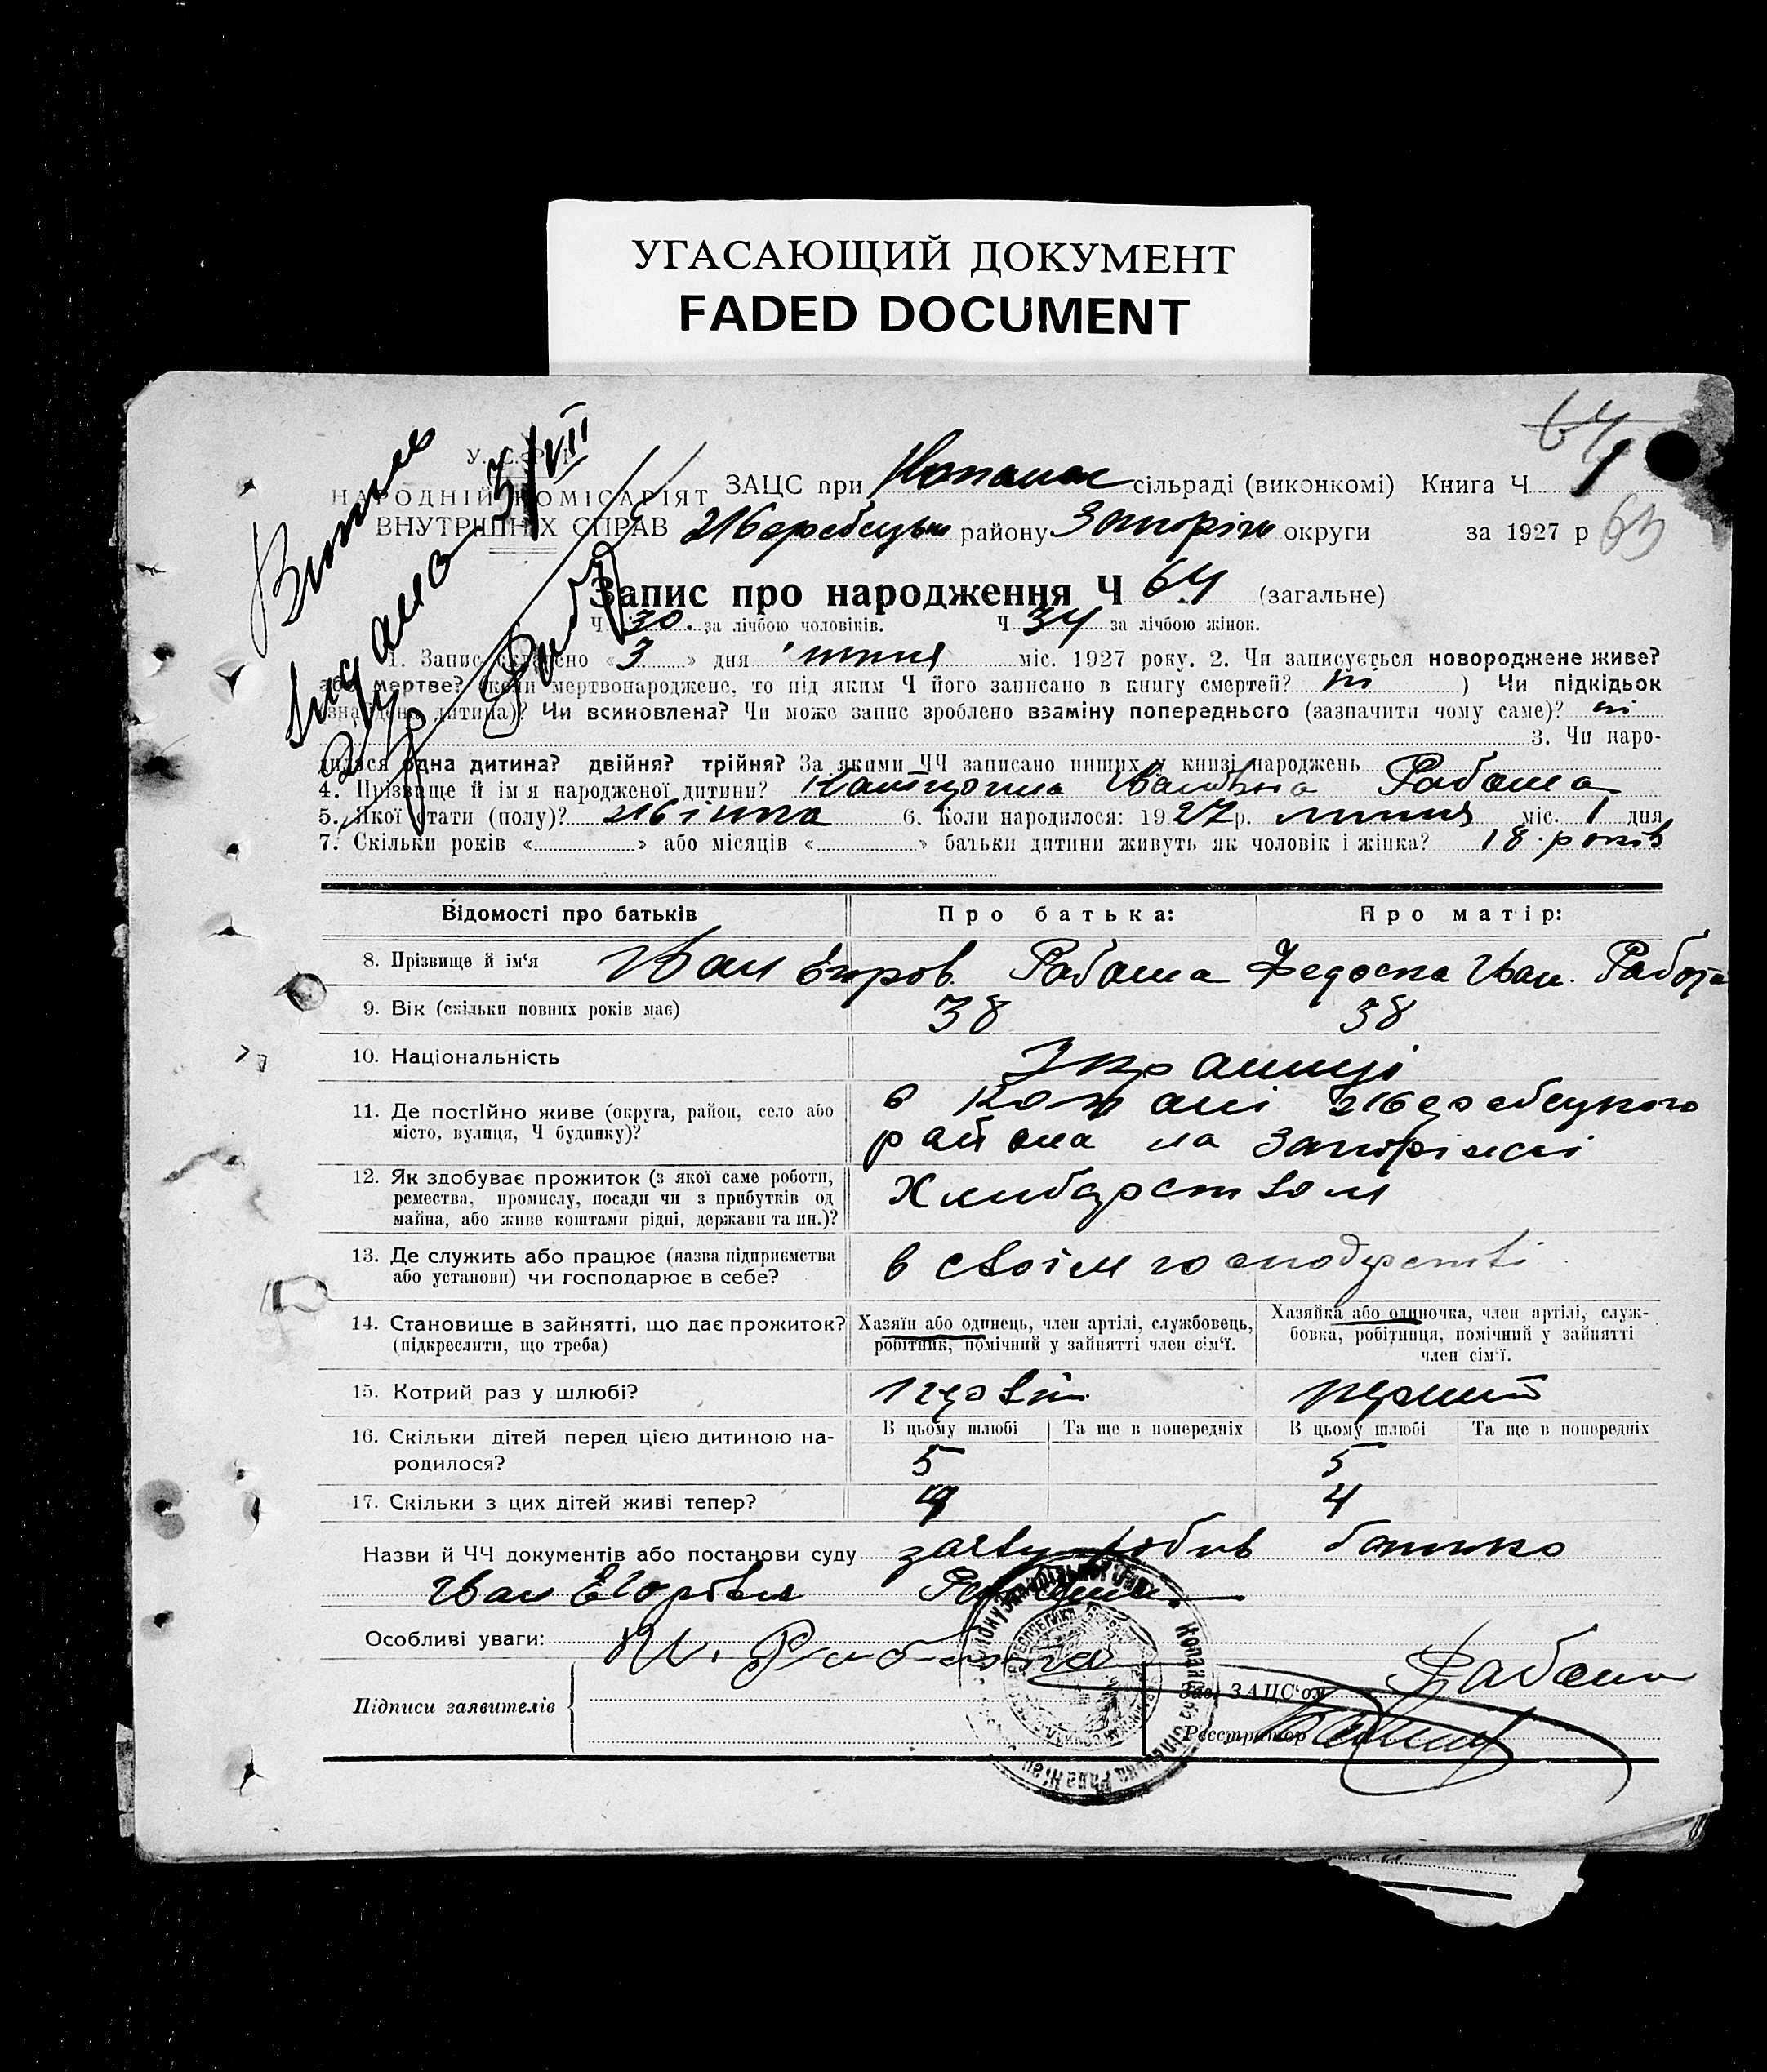 УГАСАЮЩИЙ ДОКУМЕНТ
FADED DOCUMENT
64
У.С.Р.Р.
НАРОДНІЙ КОМІСАРІЯТ
ВНУТРІШНІХ СПРАВ
ЗАЦС при Копанах сільраді (виконкомі) Книга Ч 1
району Запоріж округи за 1927 р 63
Запис про народження Ч 64 (загальне)
Ч 30. за лічбою чоловіків. Ч 34 за лічбою жінок.
1. Запис складено «3» дня липня міс. 1927 року. 2. Чи записується новороджене живе?
або мертве? (коли мертвонароджене, то під яким Ч його записано в книгу смертей? ні ) Чи підкідьок
(знайдена дитина)? Чи всиновлена? Чи може запис зроблено взаміну попереднього (зазначити чому саме)? ні
3. Чи наро-
дилася одна дитина? двійня? трійня? За якими ЧЧ записано инших у книзі народжень
4. Прізвище й ім'я народженої дитини? Катерина Іванівна Работа
5. Якої стати (полу)? жіноча 6. Коли народилося: 1927р. липня міс. 1 дня
7. Скільки років «» або місяців «» батьки дитини живуть як чоловік і жінка? 18 років
Відомості про батьків Про батька: Про матір:
8. Прізвище й ім'я Иван Егоров. Работа Федоска Иван. Работа
9. Вік (скільки повних років має) 38 38
10. Національність Українці
11. Де постійно живе (округа, район, село або
місто, вулиця, Ч будинку)?
в Копані Жеребецького
района на Запоріжжі
12. Як здобуває прожиток (з якої саме роботи,
ремества, промислу, посади чи з прибутків од
майна, або живе коштами рідні, держави та ин.)?
Хлибарством
13. Де служить або працює (назва підприємства
або установи) чи господарює в себе?
в своїм господарстві
14. Становище в зайнятті, що дає прожиток?
(підкреслити, що треба)
Хазяїн або одинець, член артілі, службовець,
робітник, помічний у зайнятті член сім'ї.
Хазяйка або одиночка, член артілі, служ-
бовка, робітниця, помічний у зайнятті
член сім'ї.
15. Котрий раз у шлюбі? перший
16. Скільки дітей перед цією дитиною на-
родилося?
В цьому шлюбі Та ще в попередніх В цьому шлюбі Та ще в попередніх
5 5
17. Скільки з цих дітей живі тепер? 4 4
Назви й ЧЧ документів або постанови суду заяву робив батько
Иван Егорович Работа
Особливі уваги: И. Работа
Підписи заявителів
Зав. ЗАЦС'ом Работа
Реєстратор